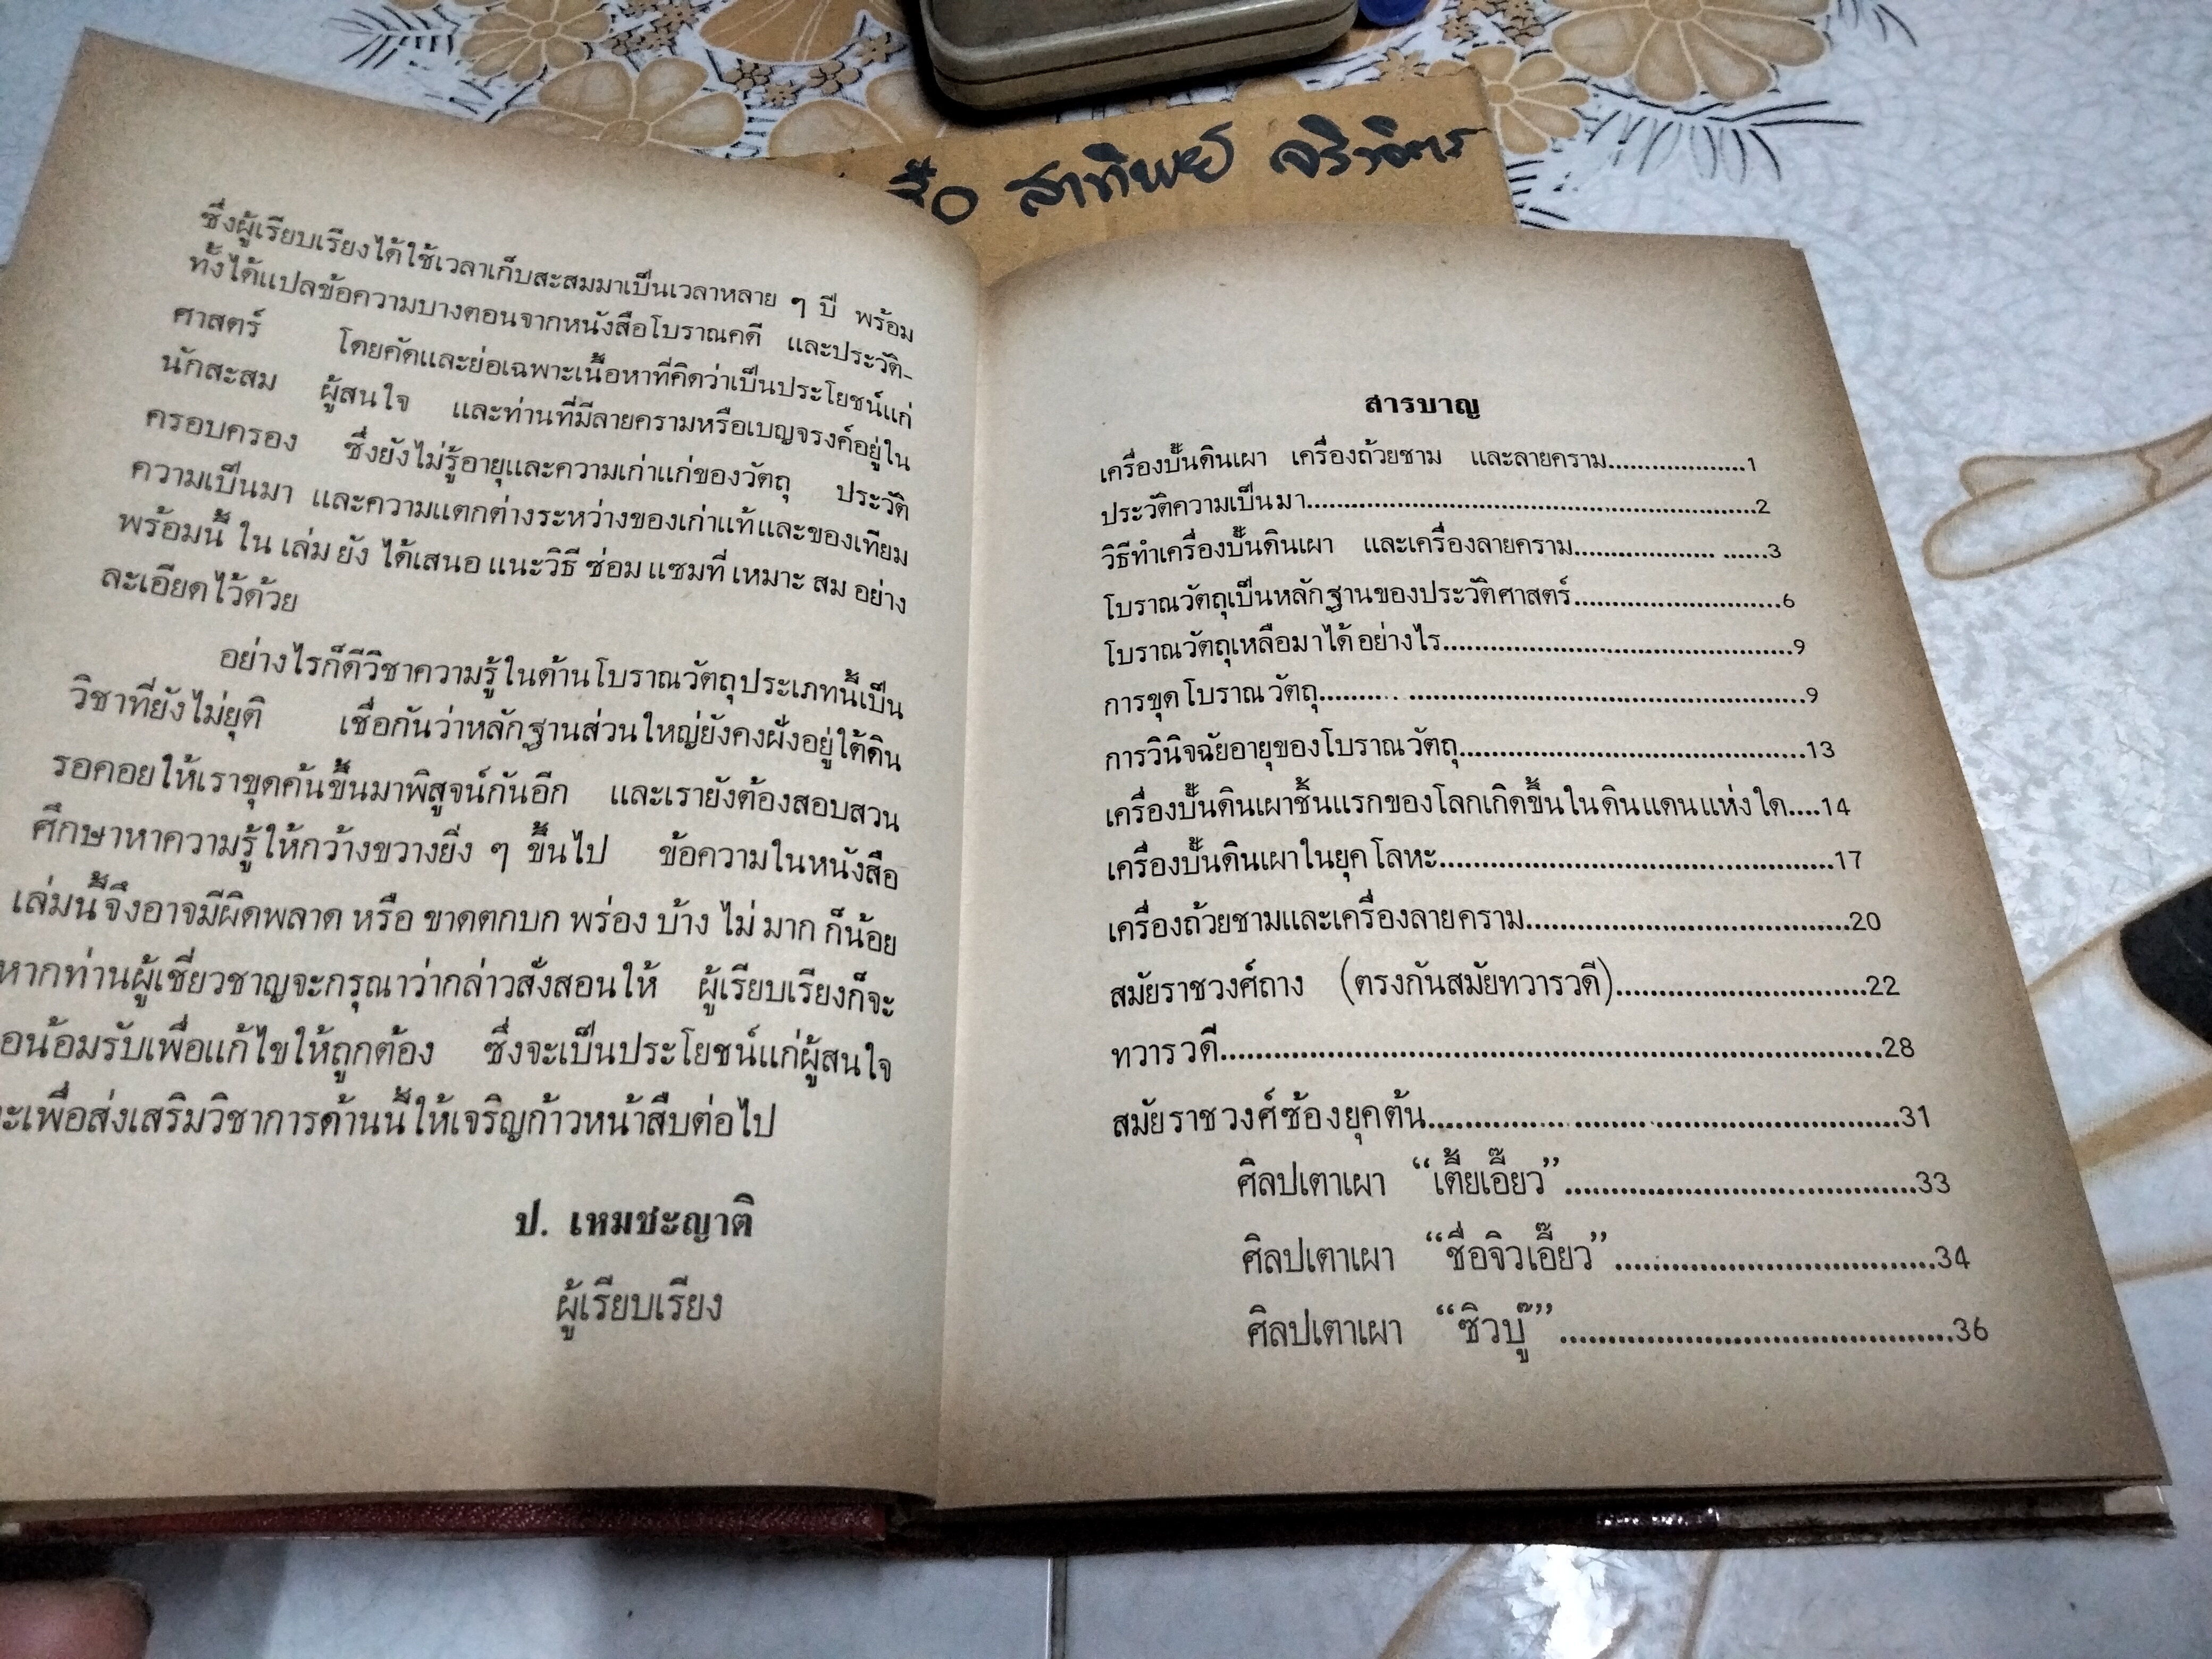 สาทิพย์ จริงจิตร
ซึ่งผู้เรียบเรียงได้ใช้เวลาเก็บสะสมมาเป็นเวลาหลาย ๆ ปี พร้อม
ทั้งได้แปลข้อความบางตอนจากหนังสือโบราณคดี และประวัติ-
ศาสตร์ โดยคัดและย่อเฉพาะเนื้อหาที่คิดว่าเป็นประโยชน์แก่
นักสะสม ผู้สนใจ และท่านที่มีลายครามหรือเบญจรงค์อยู่ใน
ครอบครอง ซึ่งยังไม่รู้อายุและความเก่าแก่ของวัตถุ ประวัติ
ความเป็นมา และความแตกต่างระหว่างของเก่าแท้และของเทียม
พร้อมนี้ ใน เล่ม ยัง ได้เสนอ แนะวิธี ซ่อม แซมที่ เหมาะ สม อย่าง
ละเอียดไว้ด้วย
อย่างไรก็ดีวิชาความรู้ในด้านโบราณวัตถุประเภทนี้เป็น
วิชาที่ยังไม่ยุติ เชื่อกันว่าหลักฐานส่วนใหญ่ยังคงฝังอยู่ใต้ดิน
รอคอยให้เราขุดค้นขึ้นมาพิสูจน์กันอีก และเรายังต้องสอบสวน
ศึกษาหาความรู้ให้กว้างขวางยิ่ง ๆ ขึ้นไป ข้อความในหนังสือ
เล่มนี้จึงอาจมีผิดพลาด หรือ ขาดตกบก พร่อง บ้าง ไม่ มาก ก็น้อย
หากท่านผู้เชี่ยวชาญจะกรุณาว่ากล่าวสั่งสอนให้ ผู้เรียบเรียงก็จะ
อน้อมรับเพื่อแก้ไขให้ถูกต้อง ซึ่งจะเป็นประโยชน์แก่ผู้สนใจ
ะเพื่อส่งเสริมวิชาการด้านนี้ให้เจริญก้าวหน้าสืบต่อไป
ป. เหมชะญาติ
ผู้เรียบเรียง
สารบาญ
เครื่องปั้นดินเผา เครื่องถ้วยชาม และลายคราม....................1
ประวัติความเป็นมา....................2
วิธีทำเครื่องปั้นดินเผา และเครื่องลายคราม....................3
โบราณวัตถุเป็นหลักฐานของประวัติศาสตร์....................6
โบราณวัตถุเหลือมาได้อย่างไร....................9
การขุดโบราณวัตถุ....................9
การวินิจฉัยอายุของโบราณวัตถุ....................13
เครื่องปั้นดินเผาชิ้นแรกของโลกเกิดขึ้นในดินแดนแห่งใด....14
เครื่องปั้นดินเผาในยุคโลหะ....................17
เครื่องถ้วยชามและเครื่องลายคราม....................20
สมัยราชวงศ์ถาง (ตรงกันสมัยทวารวดี)....................22
ทวารวดี....................28
สมัยราชวงศ์ซ้องยุคต้น....................31
ศิลปเตาเผา “เตี้ยเอี๊ยว”....................33
ศิลปเตาเผา “ชื่อจิวเอี๊ยว”....................34
ศิลปเตาเผา “ซิวบู๊”....................36